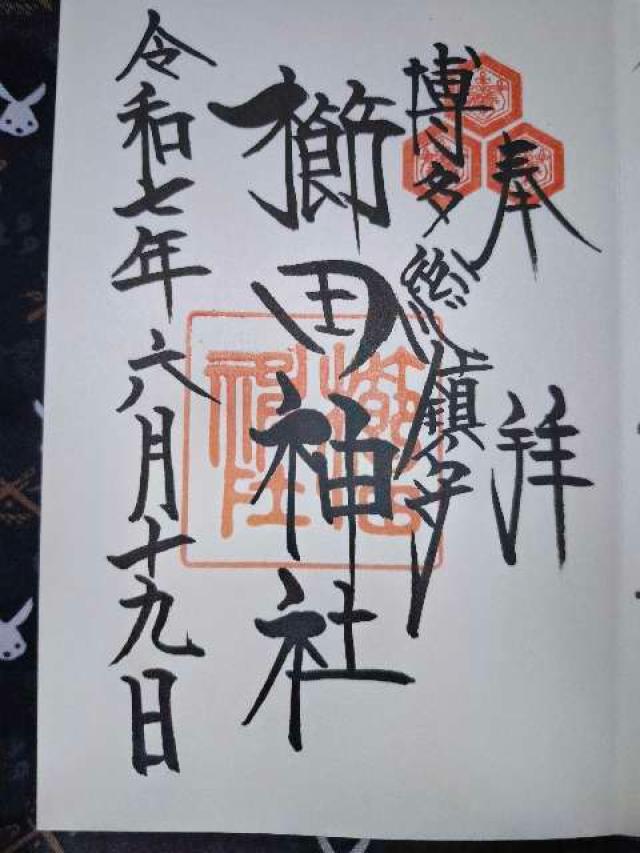 奉拝
博多総鎮守
櫛田神社
令和七年六月十九日